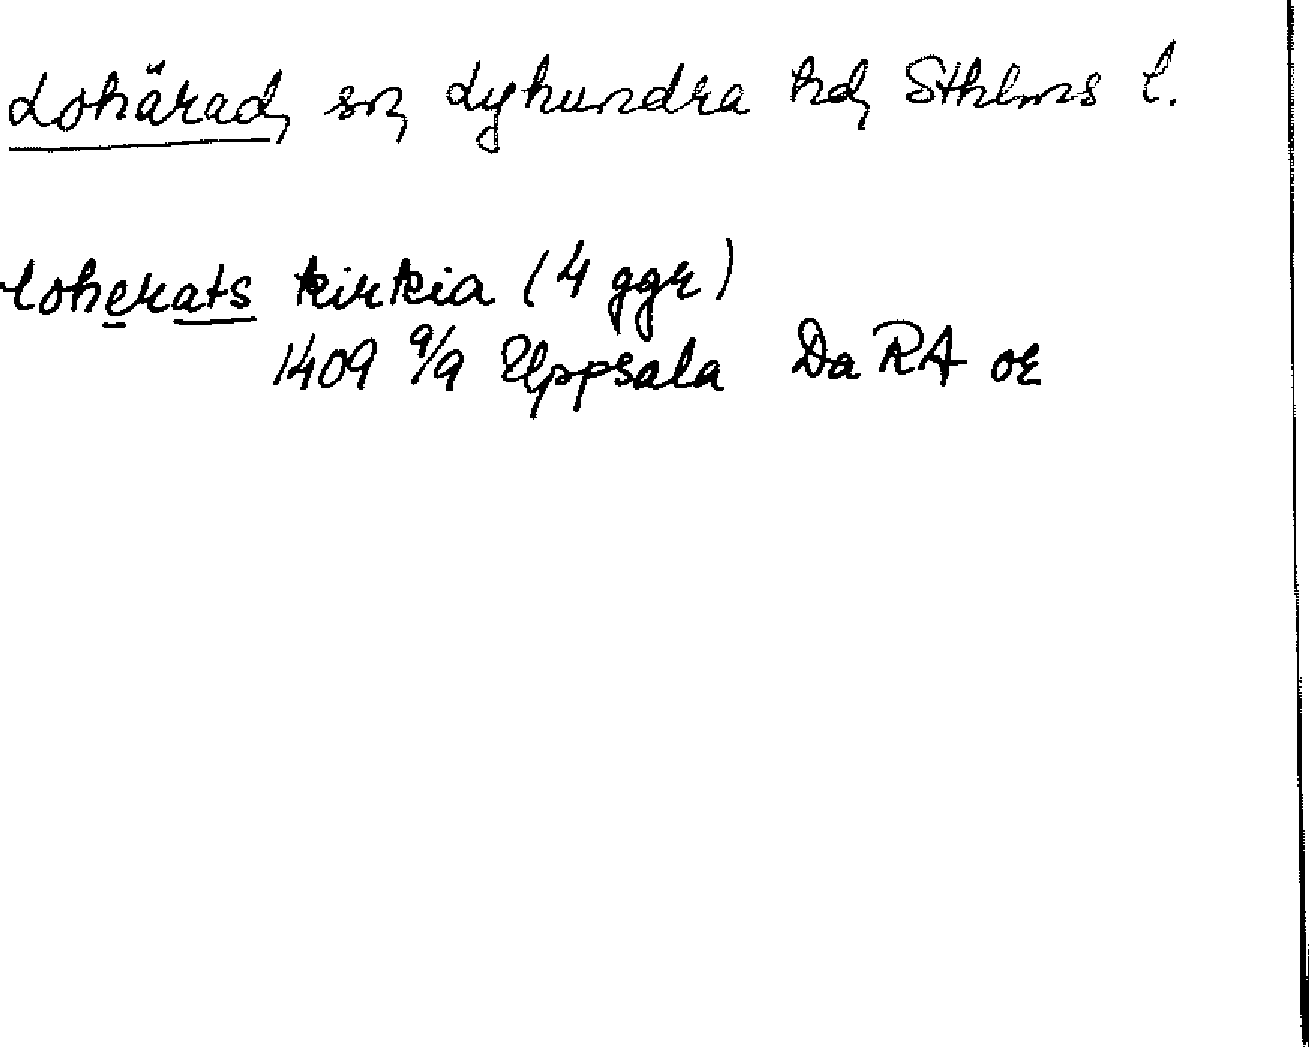 Lohärad, sn, Lyhundra hd, Sthlms l.
loherats kirkia (4 ggr)
1409 9/9 Uppsala Da RA or